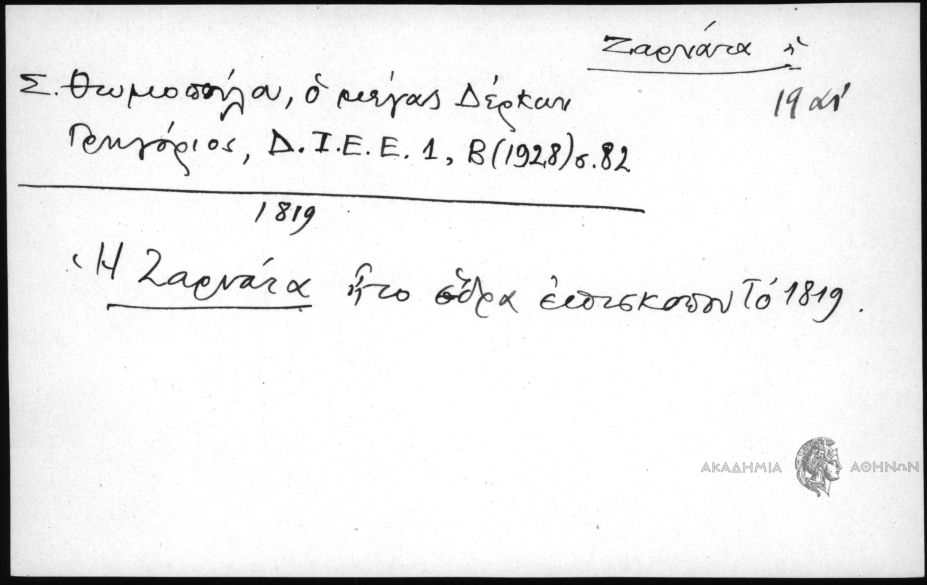 Ζαρνάτα ἡ
19 αἰ
Σ. Θωμοπούλου, ὁ μέγας Δέρκων
Γρηγόριος, Δ.Ι.Ε.Ε. 1, Β (1928) σ. 82
1819
Ἡ Ζαρνάτα ἦτο ἕδρα ἐπισκόπου τό 1819.
ΑΚΑΔΗΜΙΑ ΑΘΗΝΩΝ